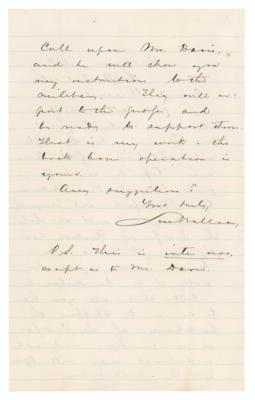 Call upon Mr. Davis,
and he will show you
my instructions to the
military. They will re-
port to the proper, and
be ready to support them.
That is my work: the
back bone operation is
yours.
Any suggestions?
Yours truly,
Lew Wallace,
P.S. This is inter nos,
except as to Mr. Davis.